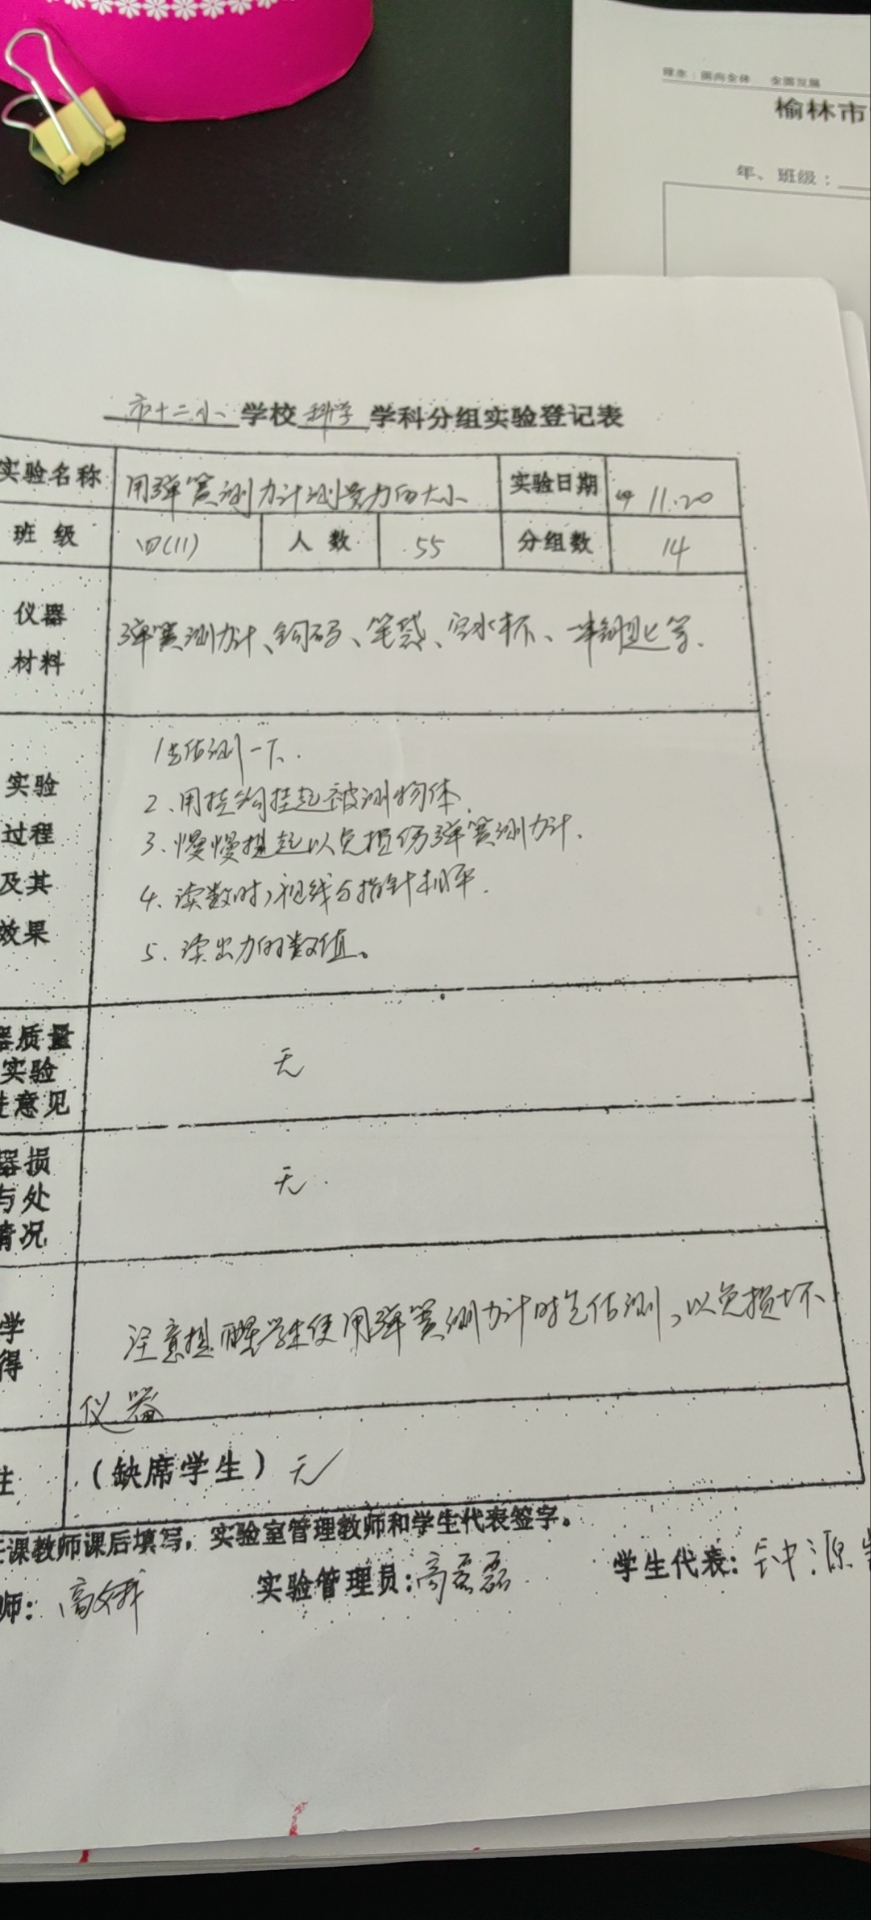 理念：面向全体 全面发展
榆林市
年、班级：
市十二小 学校 科学 学科分组实验登记表
实验名称 用弹簧测力计测量力的大小 实验日期 11.20
班 级 四(11) 人 数 55 分组数 14
仪器
材料
弹簧测力计、钩码、笔袋、空水杯、一串钥匙等.
实验
过程
及其
效果
1先估测一下.
2、用挂钩挂起被测物体.
3、慢慢提起以免损伤弹簧测力计.
4、读数时,视线与指针相平.
5、读出力的数值。
器质量
实验
意见
无
器损
与处
情况
无.
学
得
注意提醒学生使用弹簧测力计时先估测,以免损坏
仪器
注
(缺席学生) 无
任课教师课后填写，实验室管理教师和学生代表签字。
师: 高 实验管理员: 高磊磊 学生代表: 钟源